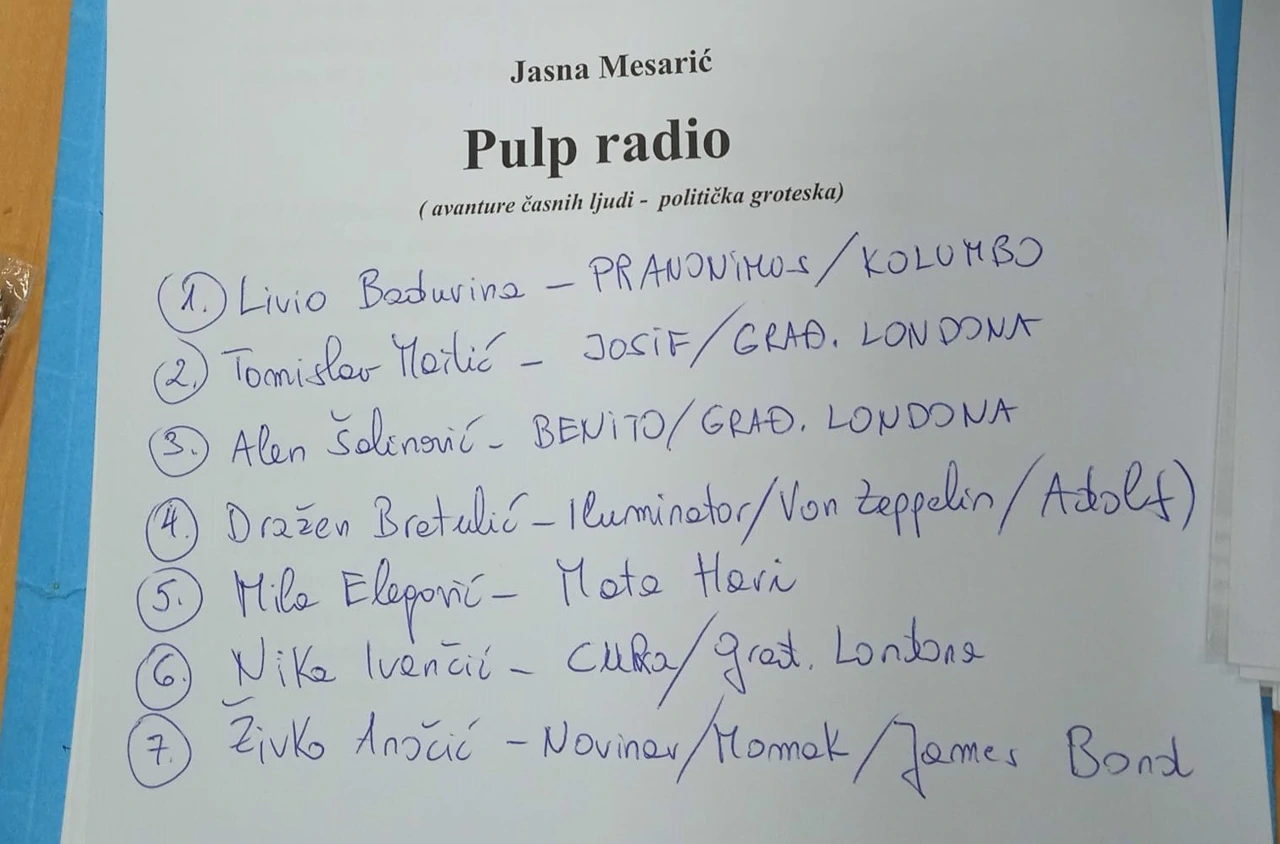 Jasna Mesarić
Pulp radio
( avanture časnih ljudi - politička groteska)
1. Livio Badurina - PRANONiMOS/KOLUMBO
2. Tomislav Martić - JOSiF/GRAĐ. LONDONA
3. Alen Šalinović - BENiTO/GRAĐ. LONDONA
4. Dražen Bratulić - Iluminator/Von Zeppelin/Adolf)
5. Mila Elegović - Mata Hari
6. Nika Ivančić - CURA/građ. Londona
7. Živko Anočić - Novinar/Momak/James Bond